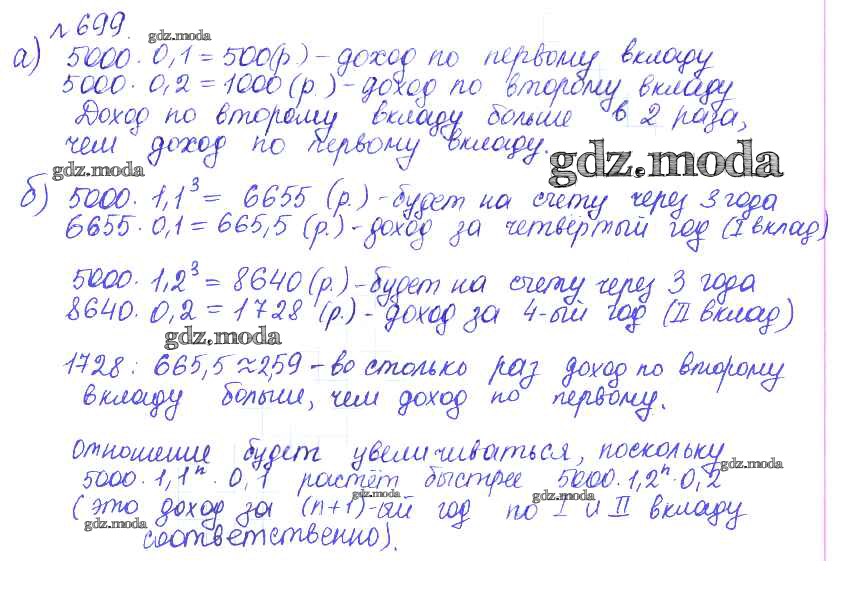 № 699. gdz.moda
а) 5000 · 0,1 = 500(р) – доход по первому вкладу
5000 · 0,2 = 1000 (р.) – доход по второму вкладу
Доход по второму вкладу больше в 2 раза,
чем доход по первому вкладу.
gdz.moda
gdz.moda
б) 5000 · 1,1³ = 6655 (р.) – будет на счету через 3 года
6655 · 0,1 = 665,5 (р.) – доход за четвёртый год (I вклад)
5000 · 1,2³ = 8640 (р.) – будет на счету через 3 года
8640 · 0,2 = 1728 (р.) – доход за 4-ый год (II вклад)
gdz.moda
1728 : 665,5 ≈ 2,59 – во столько раз доход по второму
вкладу больше, чем доход по первому.
Отношение будет увеличиваться, поскольку
gdz.moda
5000 · 1,1ⁿ · 0,1 растёт быстрее 5000 · 1,2ⁿ · 0,2
gdz.moda gdz.moda
(это доход за (n+1)-ый год по I и II вкладу
gdz.moda
соответственно).